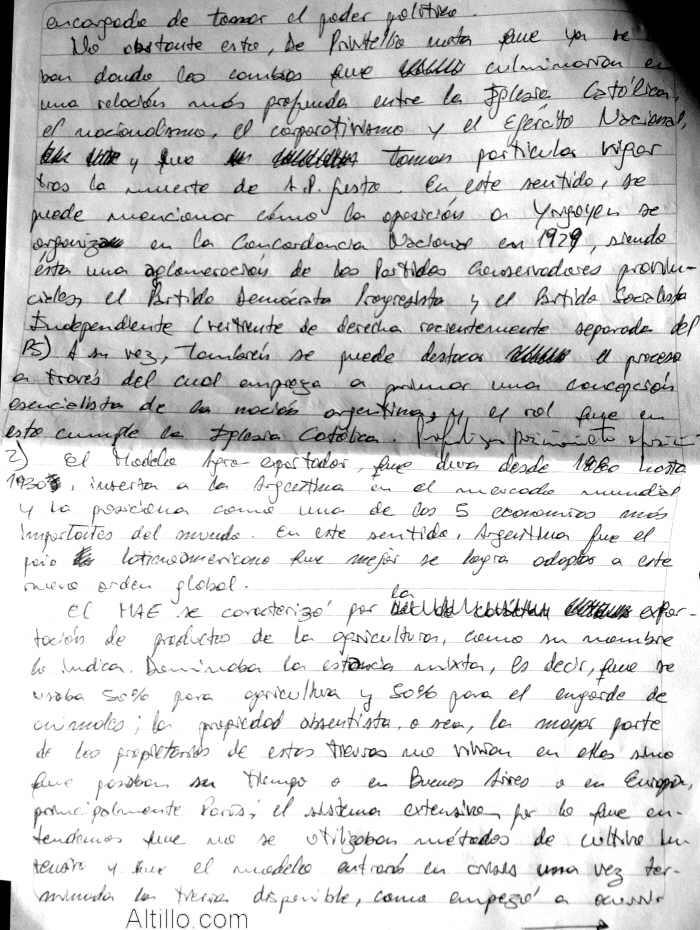 encargado de tomar el poder político.
No obstante esto, De Privitellio nota que ya se
ban dando los cambios que culminarían en
una relación más profunda entre la Iglesia Católica,
el nacionalismo, el corporativismo y el Ejército Nacional,
y que toman particular vigor
tras la muerte de A.P. Justo. En este sentido, se
puede mencionar cómo la oposición a Yrigoyen se
organiza en la Concordancia Nacional en 1929, siendo
ésta una aglomeración de los Partidos Conservadores provin-
ciales, el Partido Demócrata Progresista y el Partido Socialista
Independiente (vertiente de derecha recientemente separada del
PS) A su vez, también se puede destacar el proceso
a través del cual empieza a primar una concepción
esencialista de la nación argentina, y el rol que en
esto cumple la Iglesia Católica.
2) El Modelo Agro exportador, que dura desde 1880 hasta
1930, inserta a la Argentina en el mercado mundial
y la posiciona como una de las 5 economías más
importantes del mundo. En este sentido, Argentina fue el
país latinoamericano que mejor se logra adaptar a este
nuevo orden global.
El MAE se caracterizó por la expor-
tación de productos de la agricultura, como su nombre
lo indica. Dominaba la estancia mixta, es decir, que se
usaba 50% para agricultura y 50% para el engorde de
animales; la propiedad absentista, o sea, la mayor parte
de los propietarios de estas tierras no vivían en ellas sino
que pasaban su tiempo o en Buenos Aires o en Europa,
principalmente París; el sistema extensivo, por lo que en-
tendemos que no se utilizaban métodos de cultivo in-
tensivo y que el modelo entrará en crisis una vez ter-
minada la tierra disponible, como empezó a ocurrir
Altillo.com